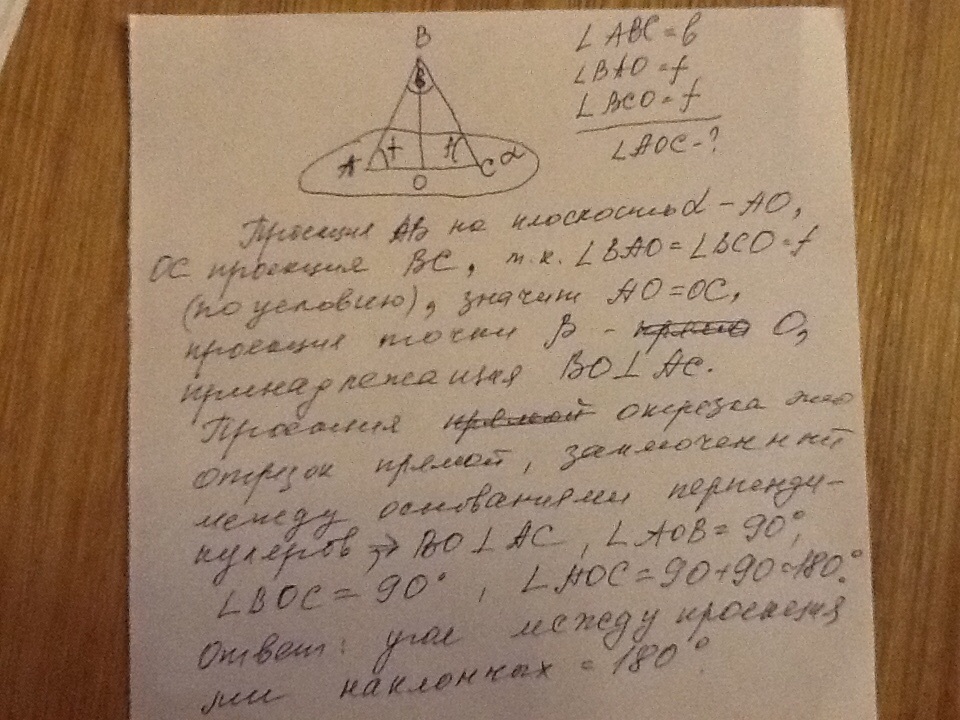 B
∠ ABC = β
∠ BAO = f
∠ BCO = f
∠ AOC - ?
β
A
f
C α
O
Проекция AB на плоскость α - AO,
OC проекция BC, т.к. ∠ BAO = ∠ BCO = f
(по условию), значит AO = OC,
проекция точки B - O,
принадлежащая BO ⊥ AC.
Проекция отрезка это
отрезок прямой, заключенный
между основаниями перпенди-
куляров ⇒ BO ⊥ AC, ∠ AOB = 90°,
∠ BOC = 90°, ∠ AOC = 90+90=180°.
Ответ: угол между проекция
ми наклонных = 180°.